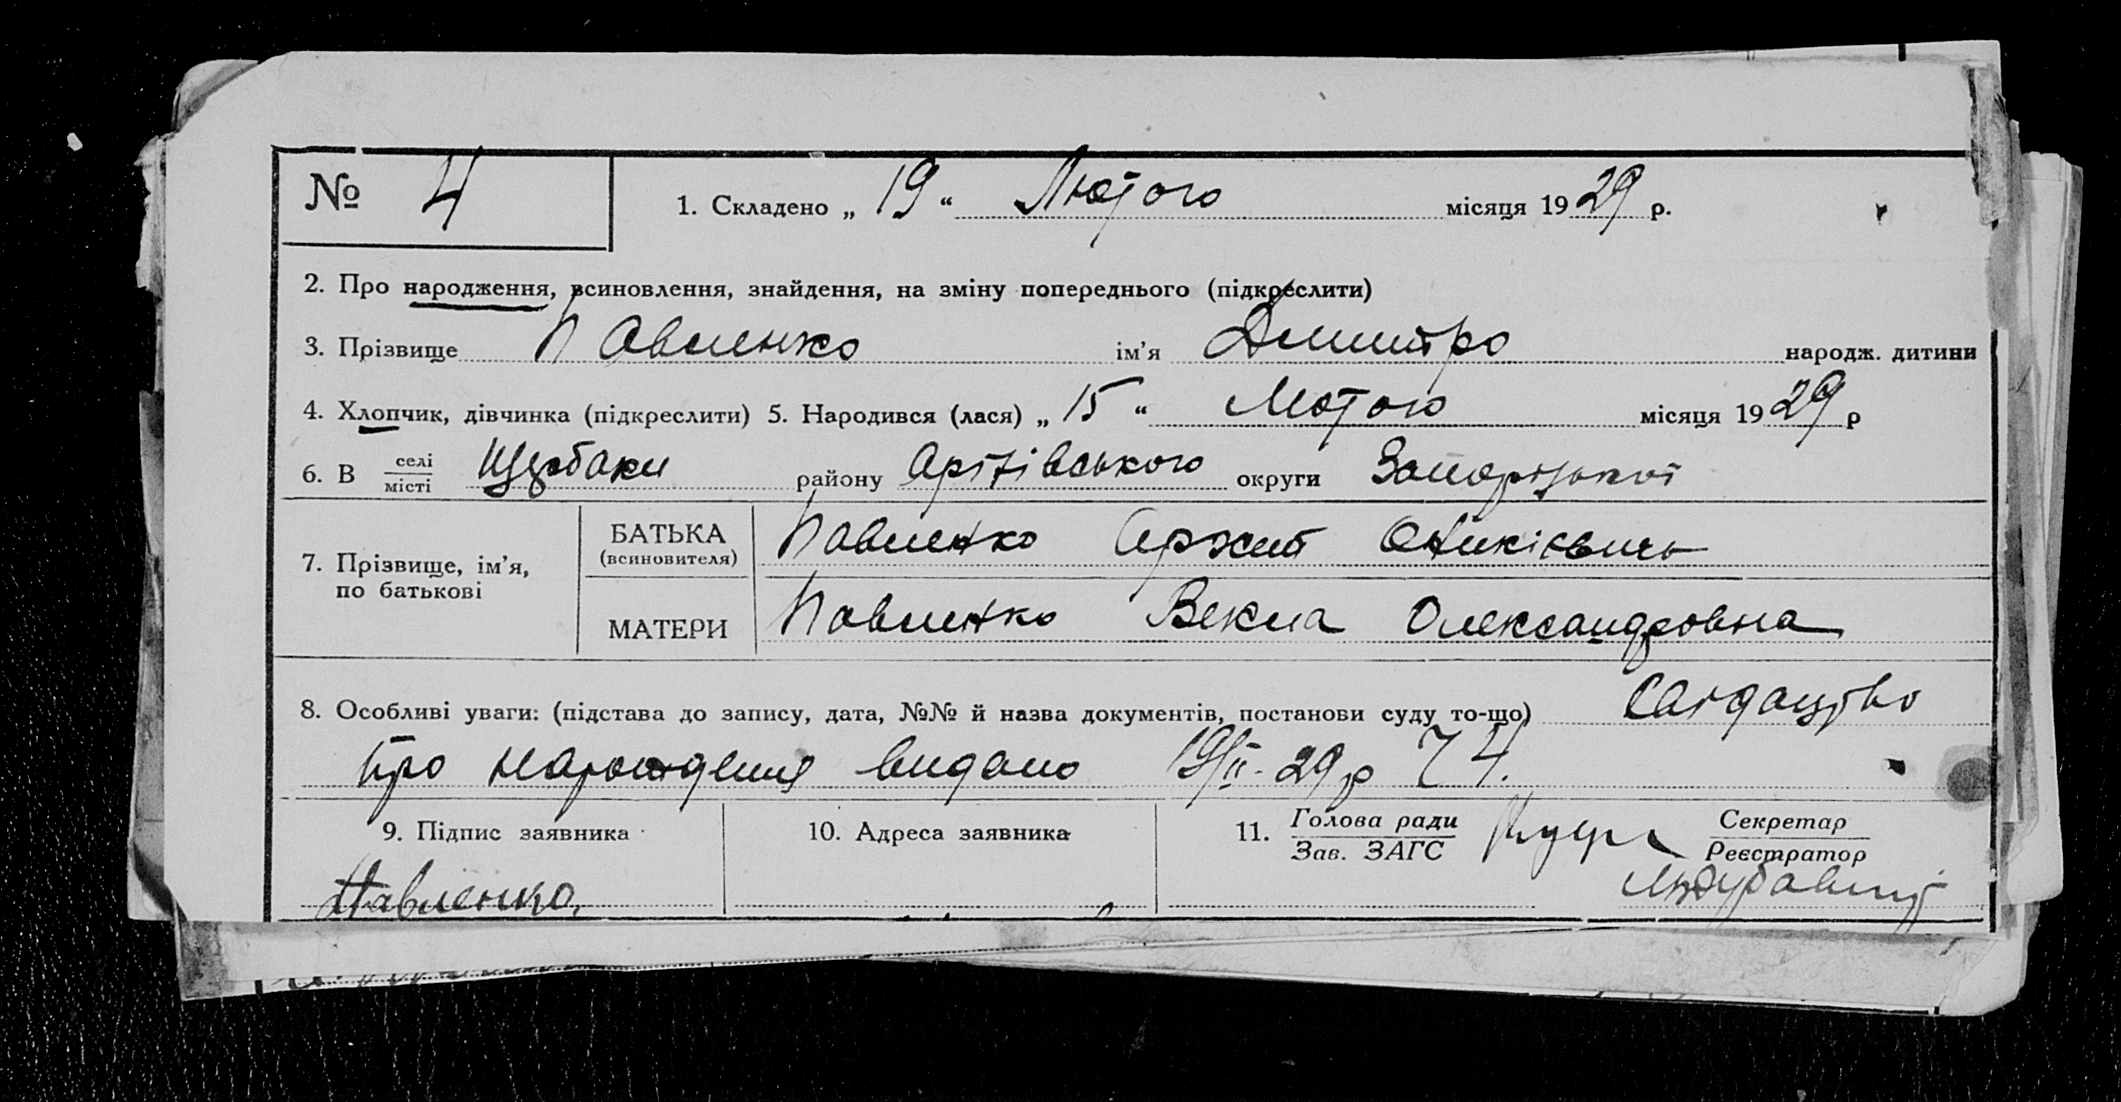 № 4 1. Складено „ 19 “ Лютого місяця 1929 р.
2. Про народження, всиновлення, знайдення, на зміну попереднього (підкреслити)
3. Прізвище Павленко ім'я Дмитро народж. дитини
4. Хлопчик, дівчинка (підкреслити) 5. Народився (лася) „ 15 “ Лютого місяця 1929 р
6. В селі Щербаки району Оріхівського округи Запорізької
місті
7. Прізвище, ім'я, по батькові
БАТЬКА (всиновителя) Павленко
МАТЕРИ Павленко Векла Олександровна
8. Особливі уваги: (підстава до запису, дата, №№ й назва документів, постанови суду то-що)
про видано 19/II-29р 4.
9. Підпис заявника 10. Адреса заявника 11. Голова ради Секретар
Зав. ЗАГС Реєстратор
Павленко.